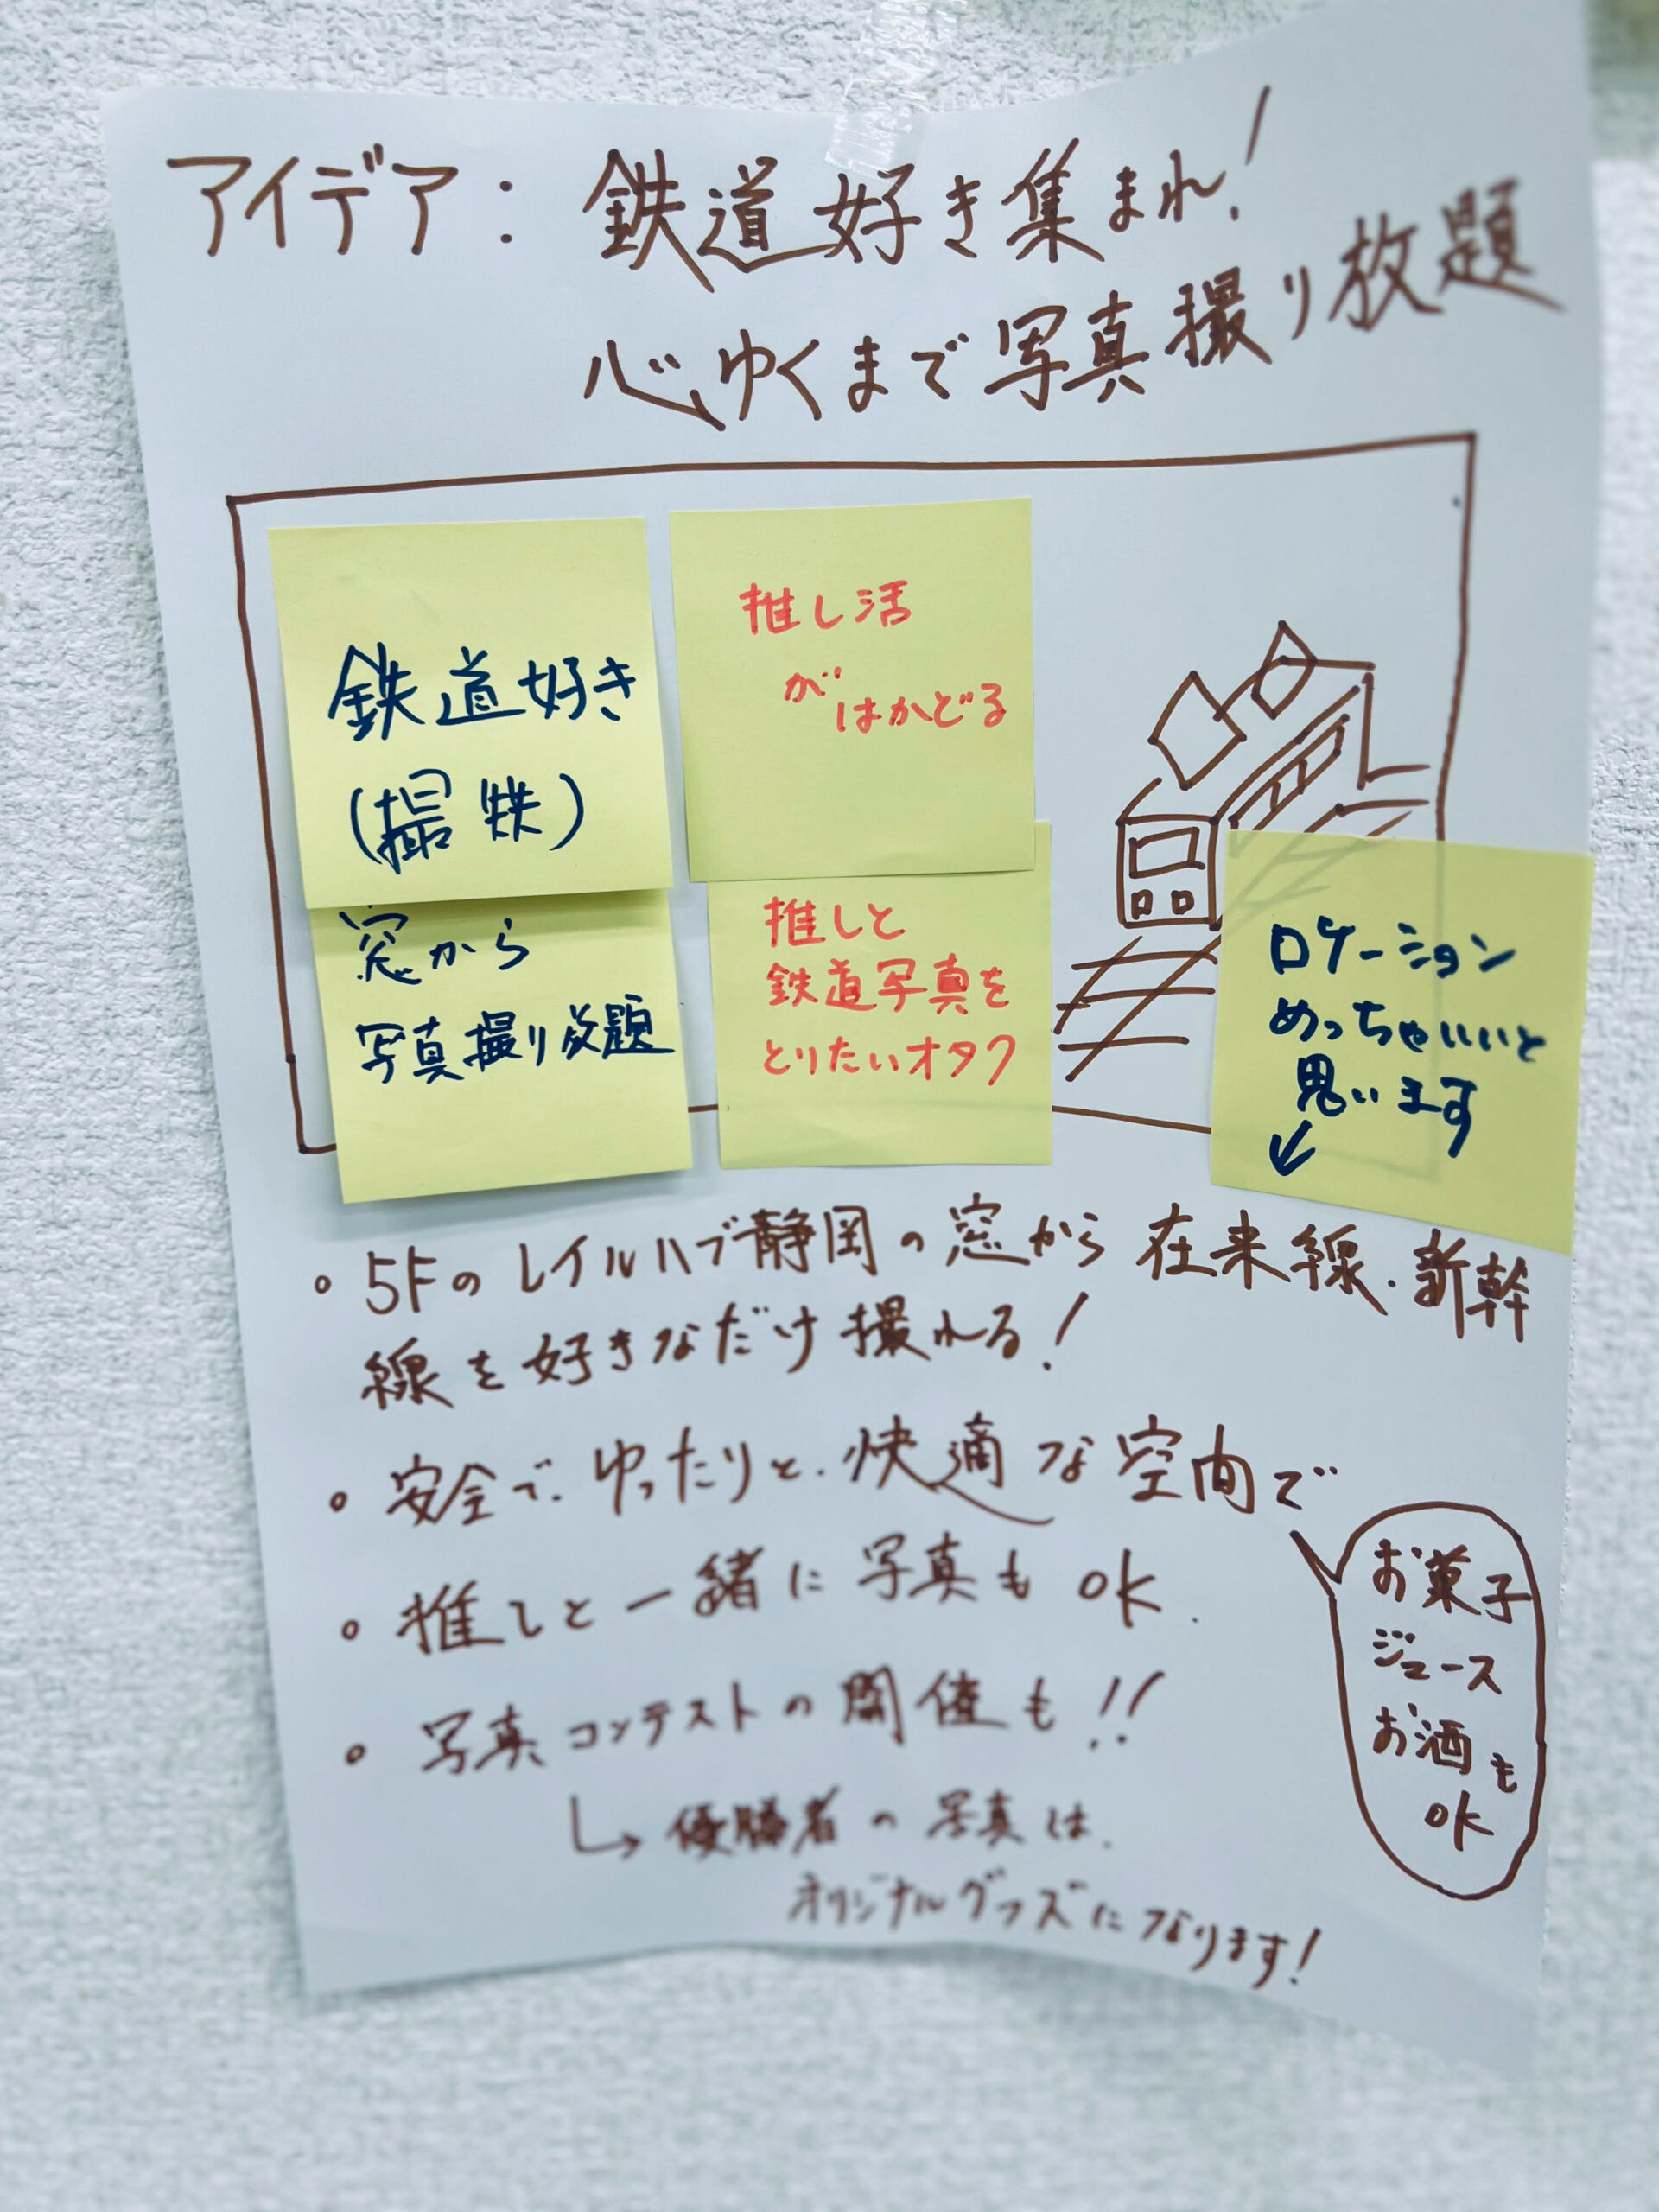 アイデア：鉄道好き集まれ！
心ゆくまで写真撮り放題
鉄道好き
(撮鉄)
窓から
写真撮り放題
推し活
が
はかどる
推しと
鉄道写真を
とりたいオタク
ロケーション
めっちゃいいと
思います
↙
• 5Fのレイルハブ静岡の窓から在来線・新幹
線を好きなだけ撮れる！
• 安全で、ゆったりと、快適な空間で
お菓子
ジュース
お酒も
OK
• 推しと一緒に写真もOK.
• 写真コンテストの開催も!!
↳ 優勝者の写真は、
オリジナルグッズになります！